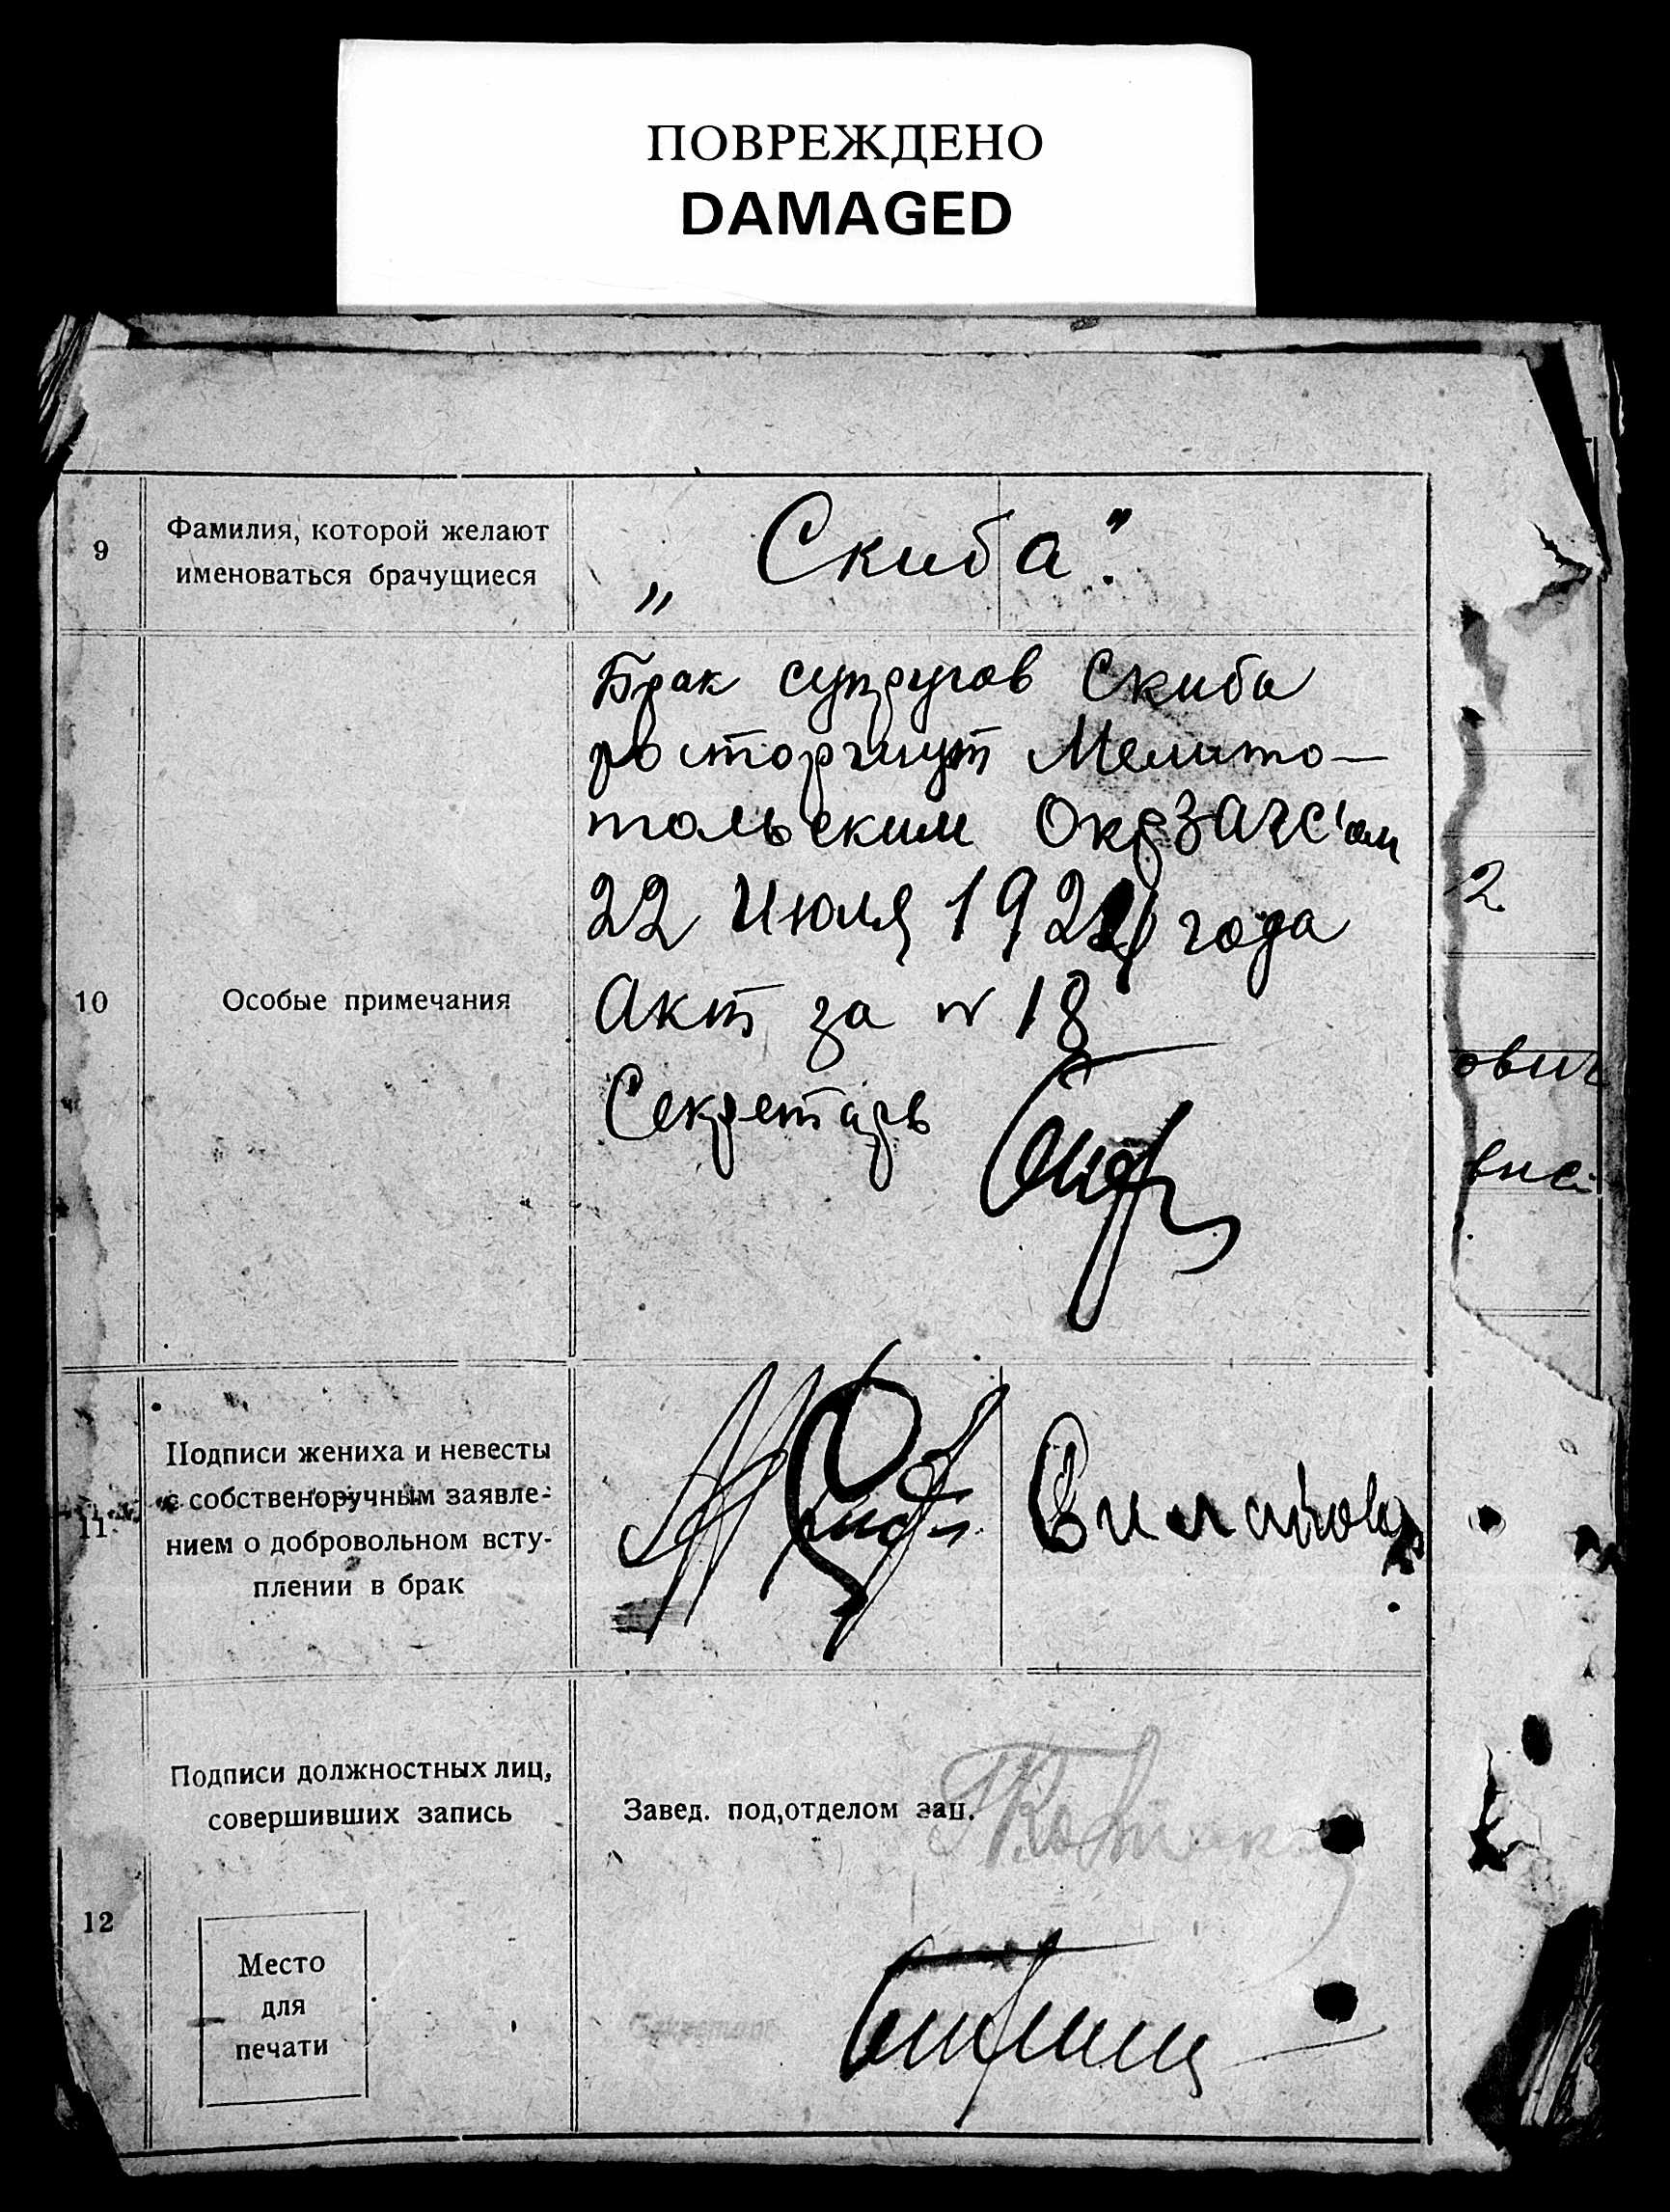 ПОВРЕЖДЕНО
DAMAGED
9
Фамилия, которой желают
именоваться брачущиеся
„ Скиба".
10
Особые примечания
Брак супругов Скиба
расторгнут Мелито-
польским Окрзагс'ом
22 Июля 192 года
Акт за № 18
Секретарь
2
ович
11
Подписи жениха и невесты
с собственоручным заявле-
нием о добровольном всту-
плении в брак
12
Подписи должностных лиц,
совершивших запись
Завед. под,отделом зап.
Место
для
печати
Секретарь